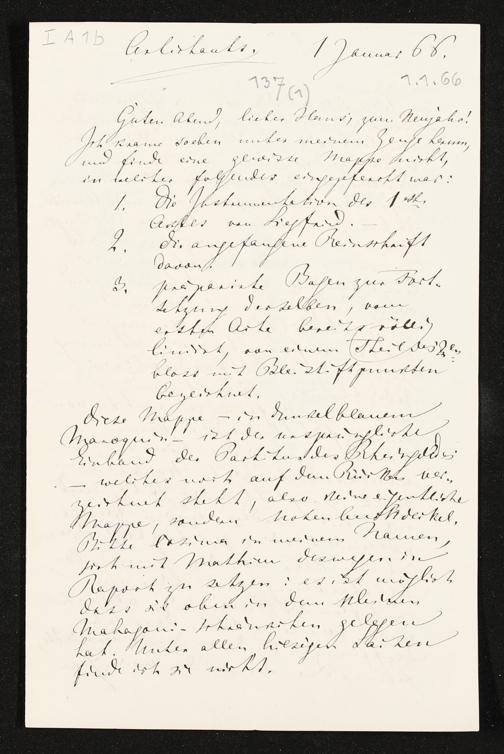 I A 1b
Artichauts. 1 Januar 66.
137(1) 1.1.66
Guten Abend, lieber Hans, zum Neujahr!
Ich krame soeben unter meinem Zeuge herum,
und finde eine gewisse Mappe nicht,
in welcher folgendes eingepfercht war:
1. Die Instrumentation des 1sten
Actes von Siegfried. —
2. die angefangene Reinschrift
davon.
3. präparirte Bogen zur Fort-
setzung derselben, vom
ersten Acte bereits völlig
liniirt, von einem Theil des 2ten
bloss mit Bleistiftpunkten
bezeichnet.
Diese Mappe — in dunkelblauem
Maroquin — ist der ursprüngliche
Einband der Partitur des Rheingoldes
— welches noch auf dem Rücken ver-
zeichnet steht, also keine eigentliche
Mappe, sondern Notenbuchdeckel.
Bitte Cosima in meinem Namen,
sich mit Mathieu deswegen in
Raport zu setzen: es ist möglich
dass sie oben in dem kleinen
Mahagoni-Schränkchen gelegen
hat. Unter allen hiesigen Sachen
finde ich sie nicht.